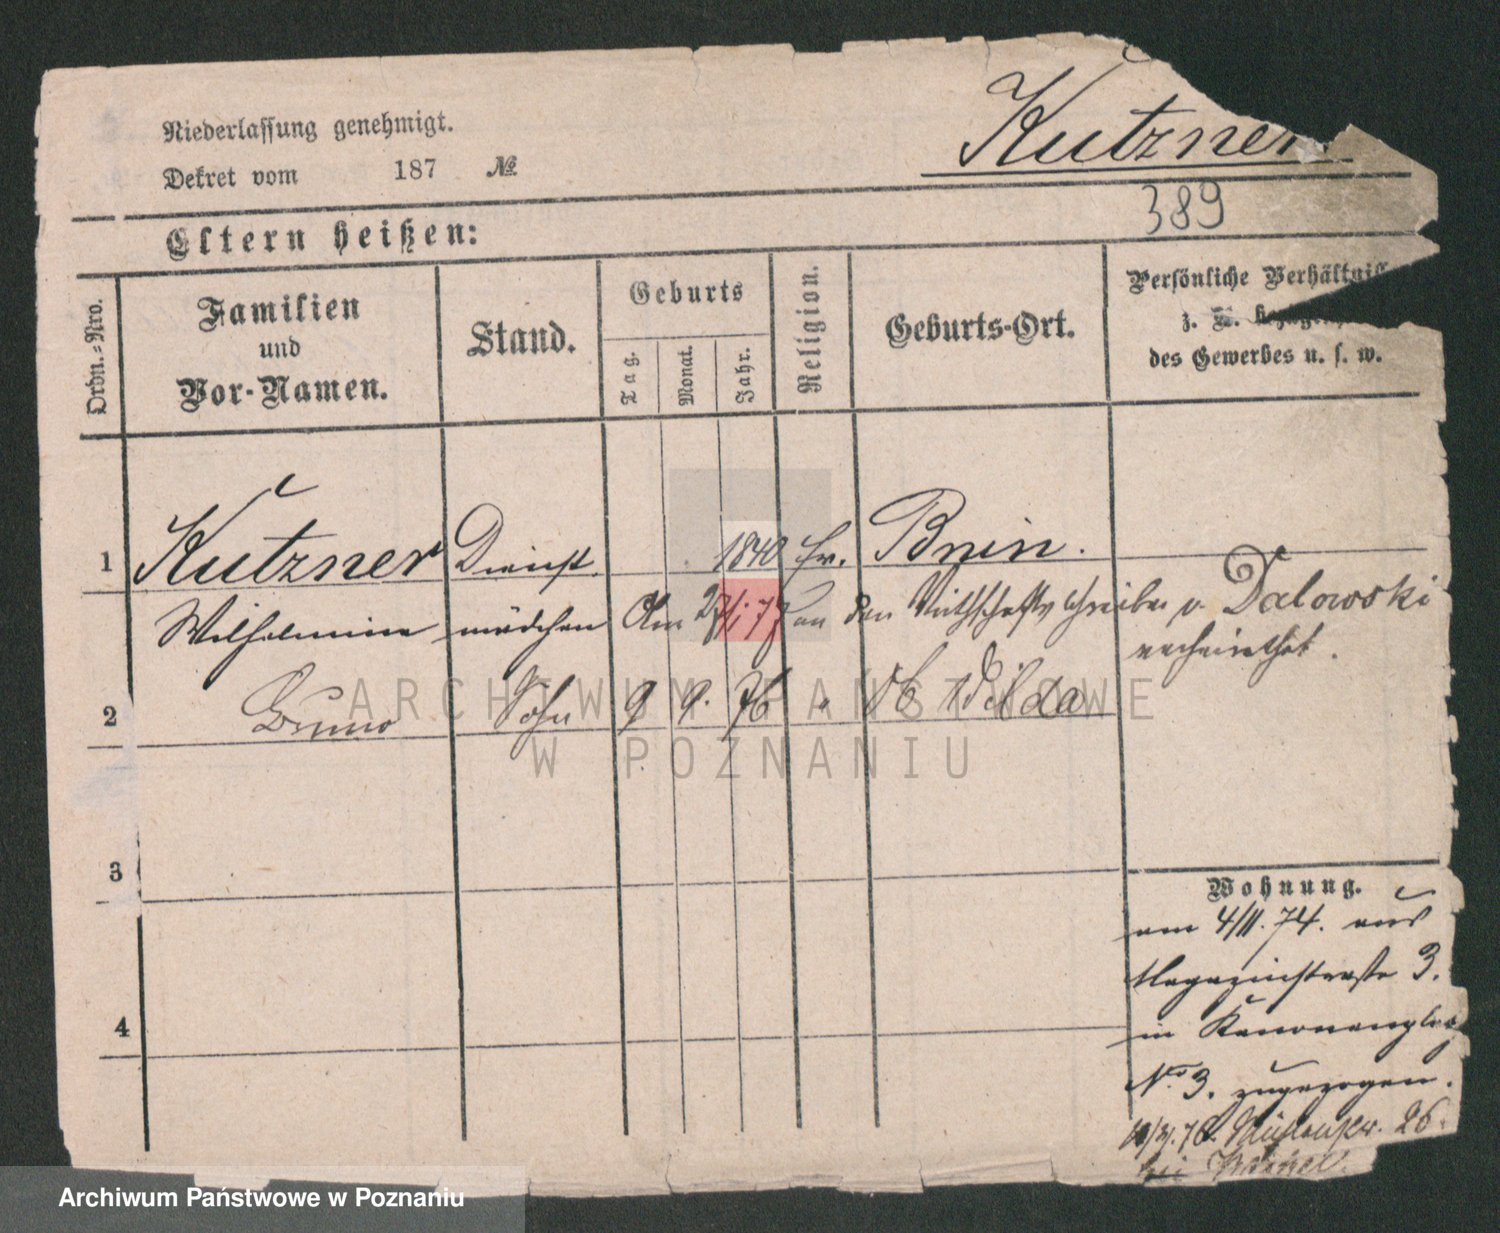 Kutzner
Niederlassung genehmigt.
Dekret vom 187 №
389
Eltern heißen:
Ordn.-Nro.
Familien
und
Vor-Namen.
Stand.
Geburts
Tag.
Monat.
Jahr.
Religion.
Geburts-Ort.
Persönliche Verhältniss
z. B.
des Gewerbes u. s. w.
1 Kutzner Dienst 1840 ev. Bnin.
Wilhelmine mädchen Am 27/1 77 an den Wirthschaftsschreiber v. Dalowski
verheirathet.
2 Bruno Sohn 9 9. 76 " Ob Wilda
3
4
Wohnung.
am 4/11. 74. aus
Magazinstraße 3.
in Kanonenplatz
No. 3. zugezogen.
26.
bei
ARCHIWUM PAŃSTWOWE
W POZNANIU
Archiwum Państwowe w Poznaniu